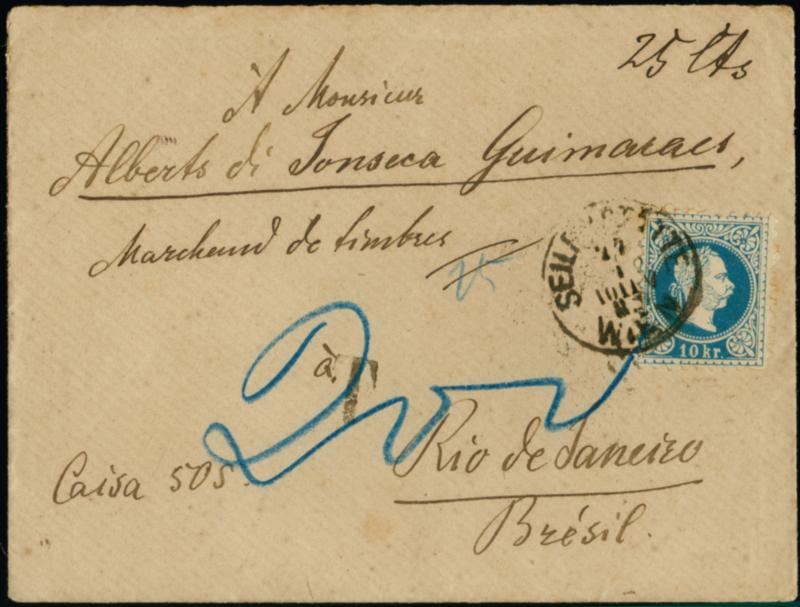 25 Cts
À Monsieur
Alberts di Fonseca Guimaraes,
Marchand de timbres
25
à
T
Caisa 505.
Rio de Janeiro
Brésil.
10 kr.